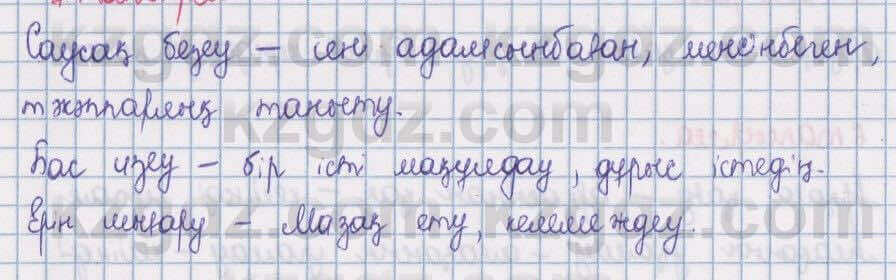 Саусақ безеу – сені адамсынбаған, менсінбеген,
тәкаппарлық таныту.
Бас изеу – бір істі мақұлдау, дұрыс істедің.
Ерін шығару – Мазақ ету, келемеждеу.
kzgdz.com